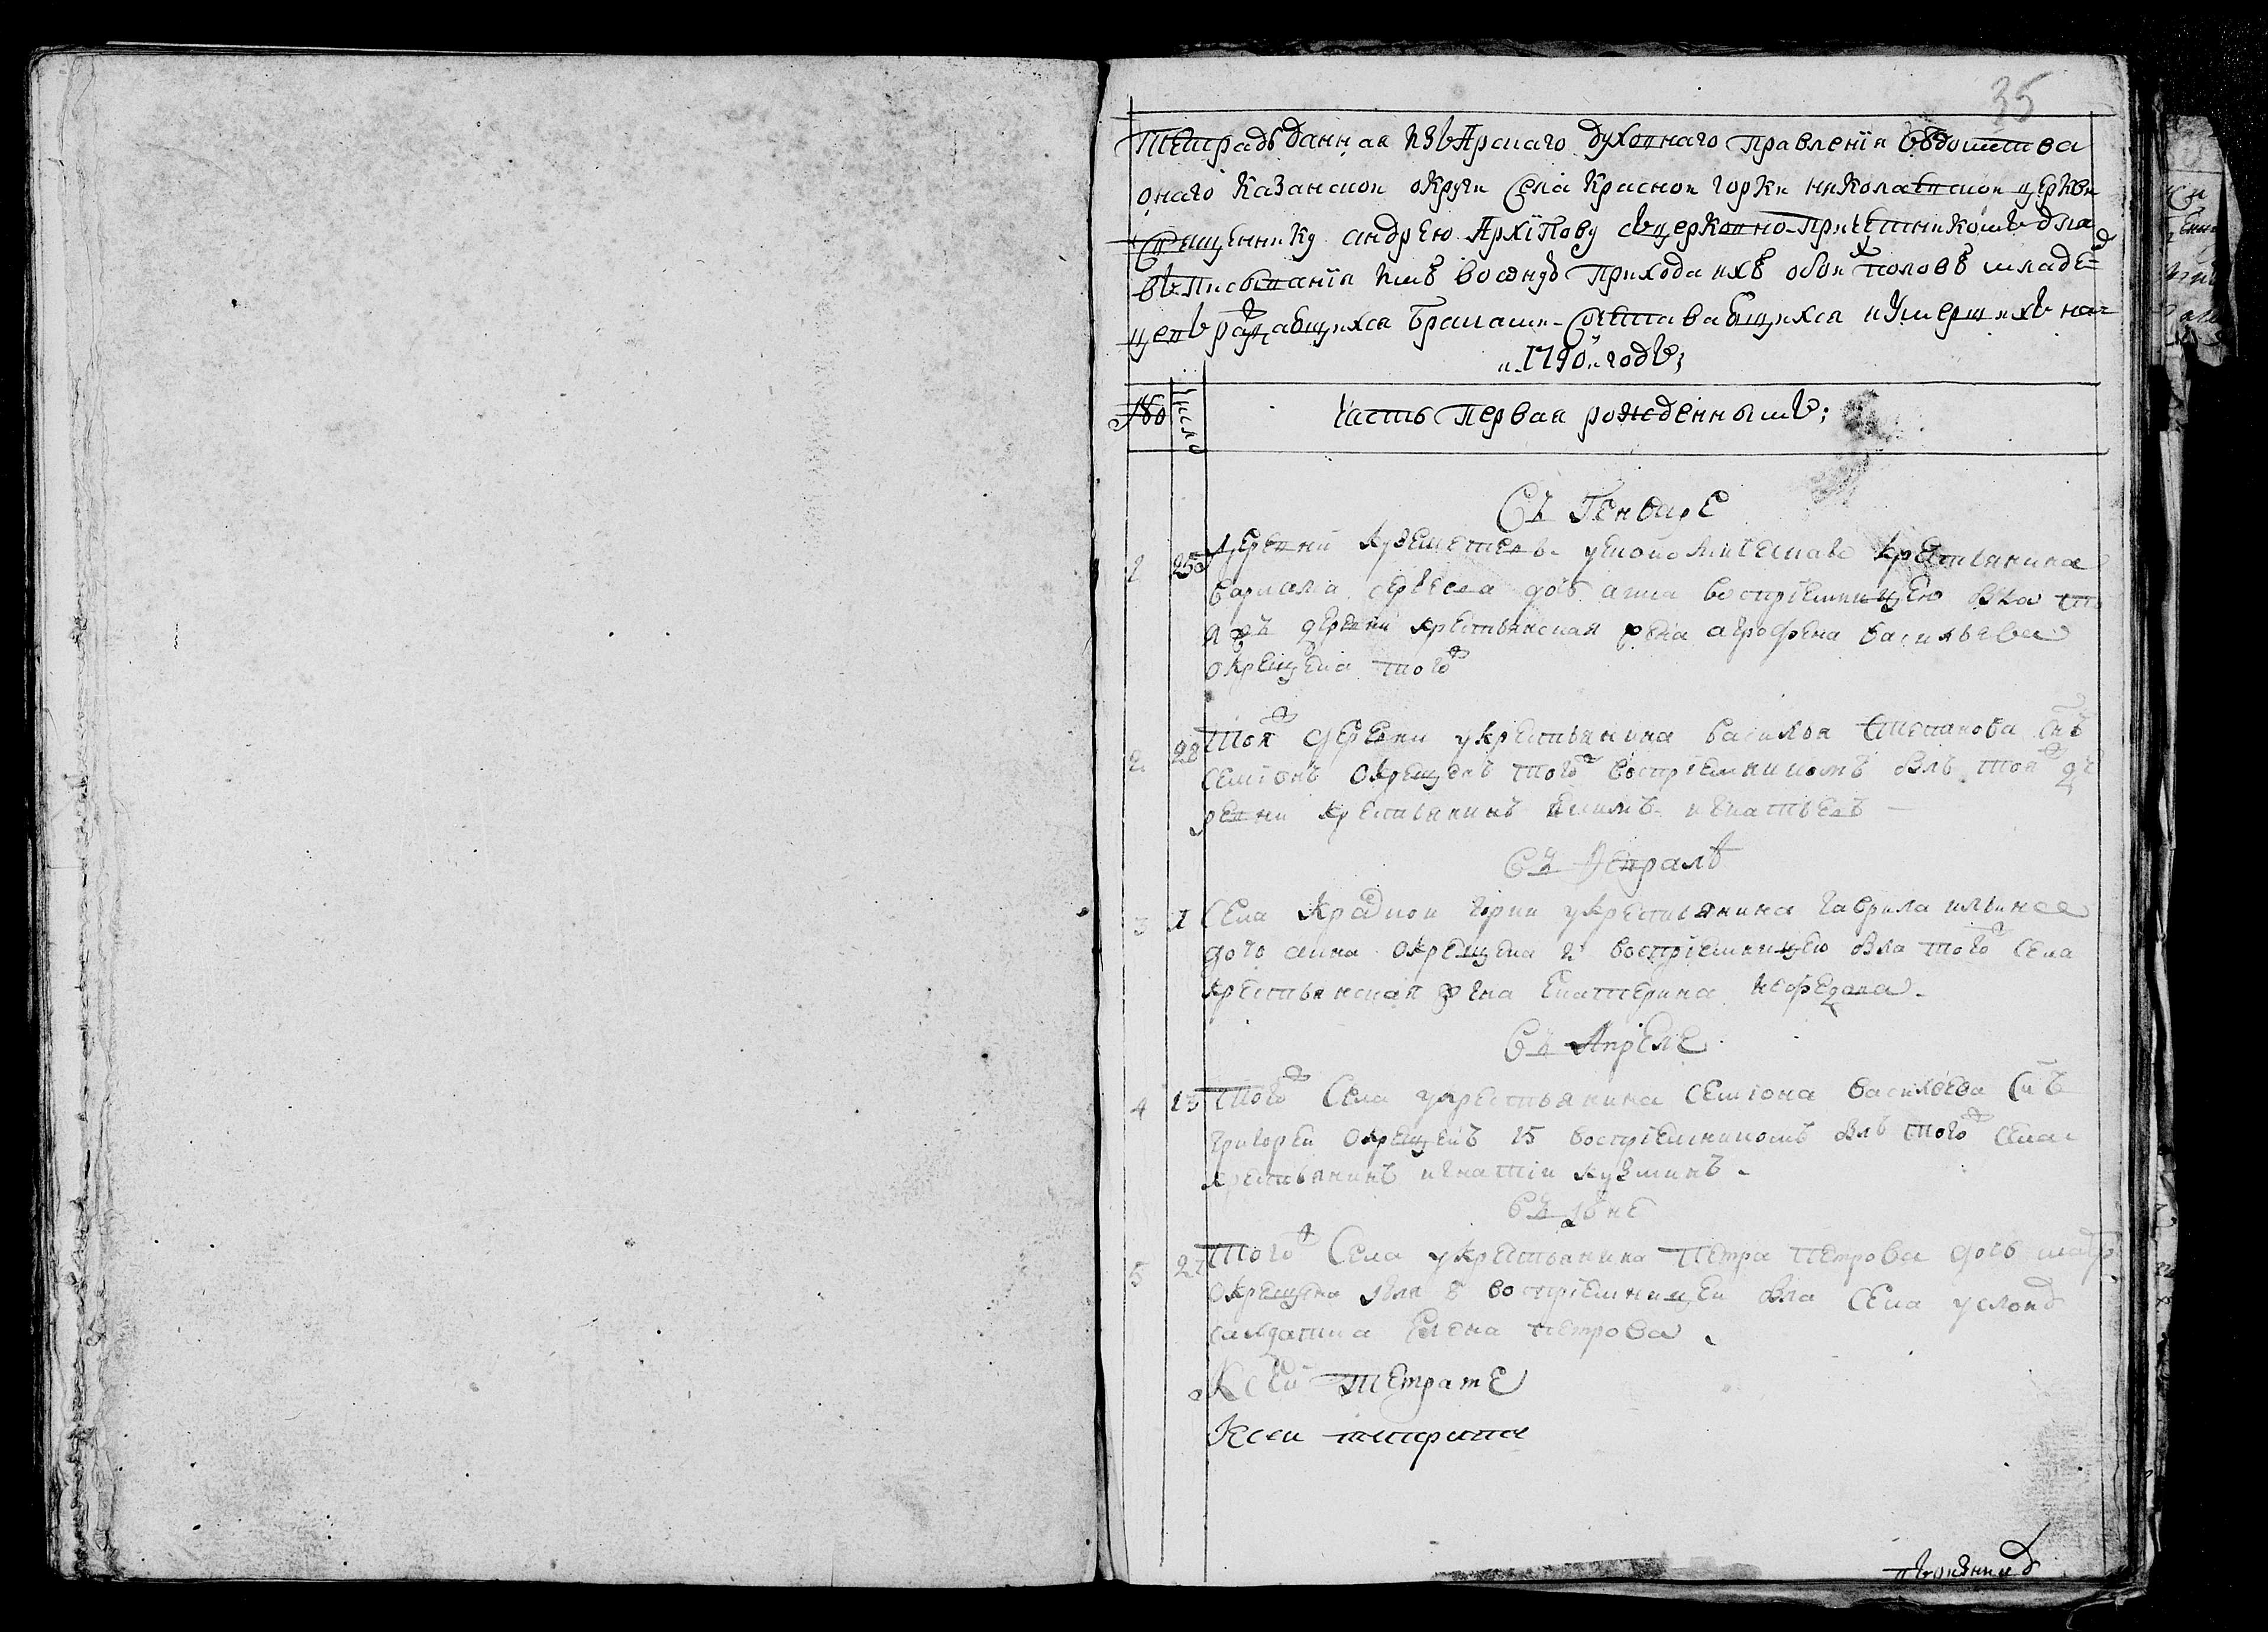 35
Тетрадь данная изъ Арскаго духовнаго правления ведомства
онаго Казанской округи Села Красной горки николаевской церкви
Священнику андрею Архїпову съ церковно-причетниками для
вписыванїя имъ воону приходаихъ обои половъ младе=
цевъ раждающихся Браками-Сочетавающихся и Умершихъ на
"1790" годъ;
№ число
Часть первая рожденнымъ;
Въ Генваре
1 25 деревни крестьянина
дочь анна восприемницею была то
я жъ деревни крестьянская жена агрофена васильева
окрещена того ж
2 28 Той ж деревни у крестьянина василья степанова снъ
семїонъ окрещенъ того ж восприемникомъ былъ той ж де
ревни крестьянинъ игнатьевъ
Въ Февралѣ
3 1 Села Красной горки у крестьянина гаврила ильина
дочь анна окрещена 2 восприемницею была того ж села
крестьянская жена екатерина нефедова
Въ Апреле
4 13 Того ж Села у крестьянина семїона васильева снъ
григореи окрещенъ 15 восприемникомъ былъ того ж села
крестьянинъ игнатїи кузминъ
Въ Июне
5 27 Того ж Села у крестьянина петра петрова дочь
окрещена восприемницеи была Села услонъ
салдатка елена петрова
К сеи тетрате
К сеи тетрате